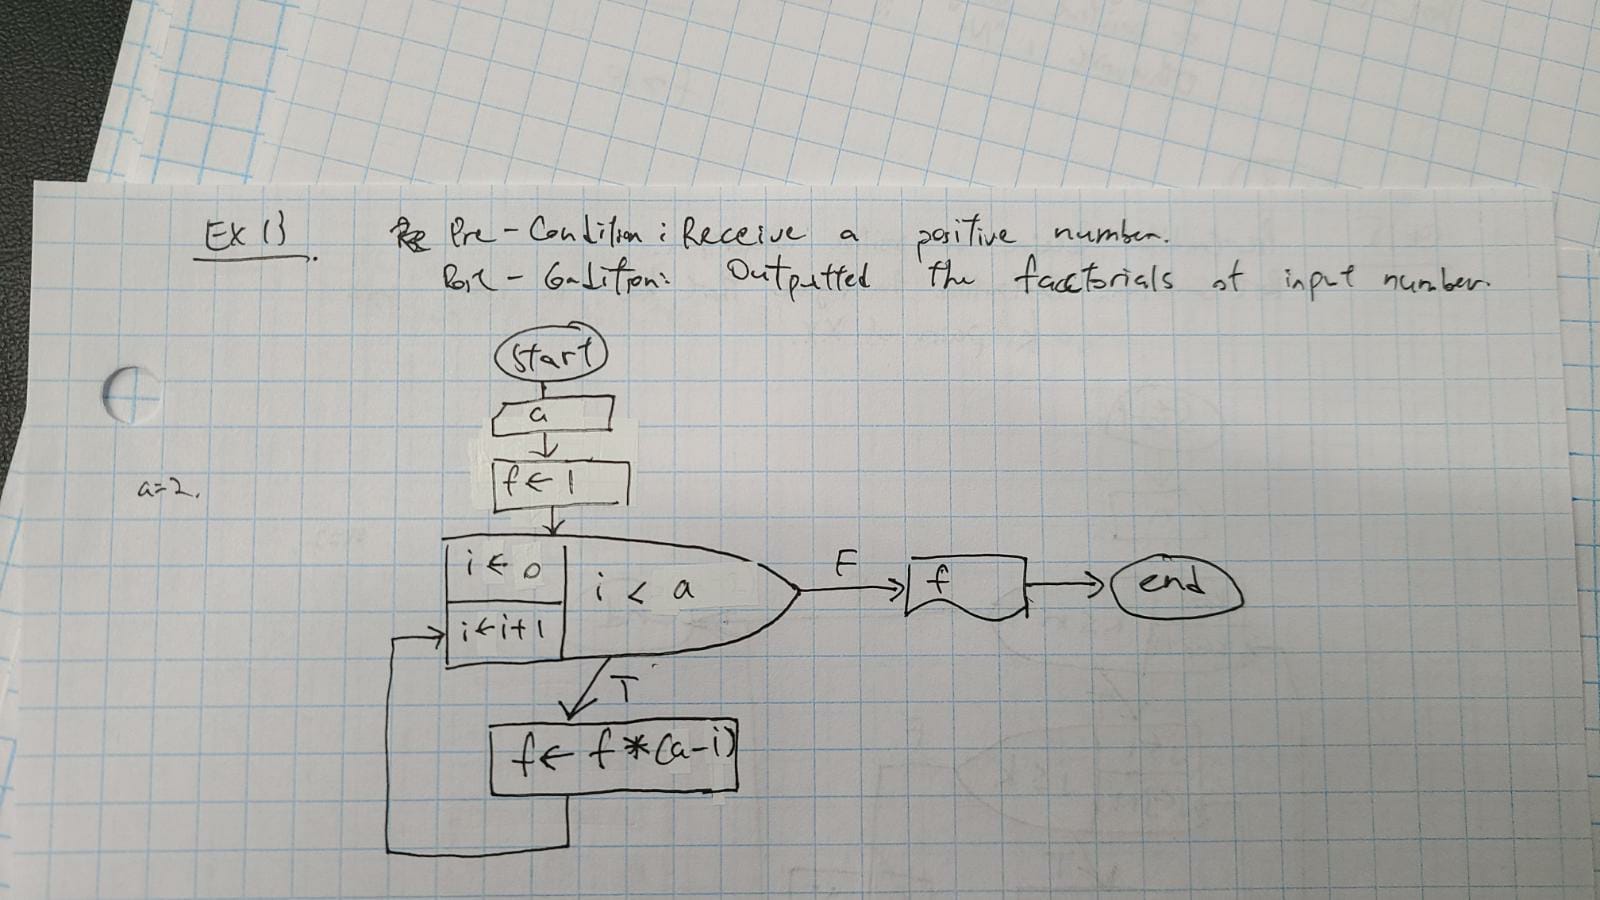 Ex 1)
Pre-Condition: Receive a positive number.
Post-Condition: Outputted the factorials of input number.
start
a
a=2.
f ← 1
i ← 0
i < a
i ← i+1
F
f
end
T
f ← f * (a-i)